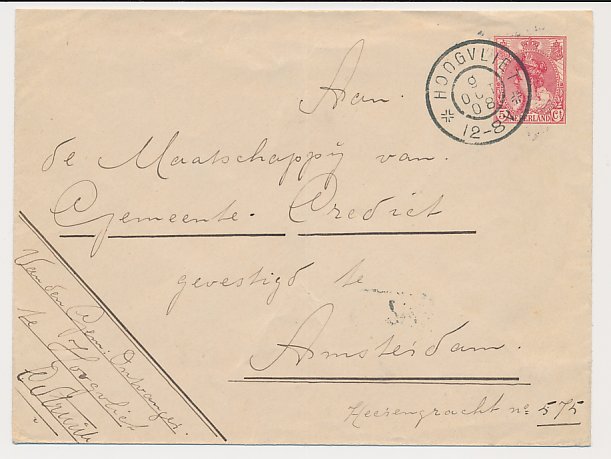 HOOGVLIET
9
OCT
08
12-8
5
NEDERLAND
Ct
Aan
de Maatschappij van
Gemeente Crediet
gevestigd te
Amsterdam.
Heerengracht no 575
Van den Gem: Ontvanger
te Hoogvliet